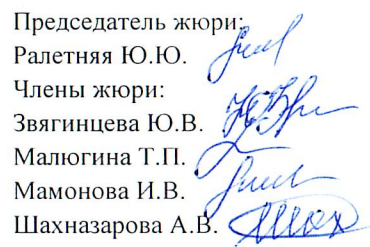 Председатель жюри:
Ралетняя Ю.Ю.
Члены жюри:
Звягинцева Ю.В.
Малюгина Т.П.
Мамонова И.В.
Шахназарова А.В.